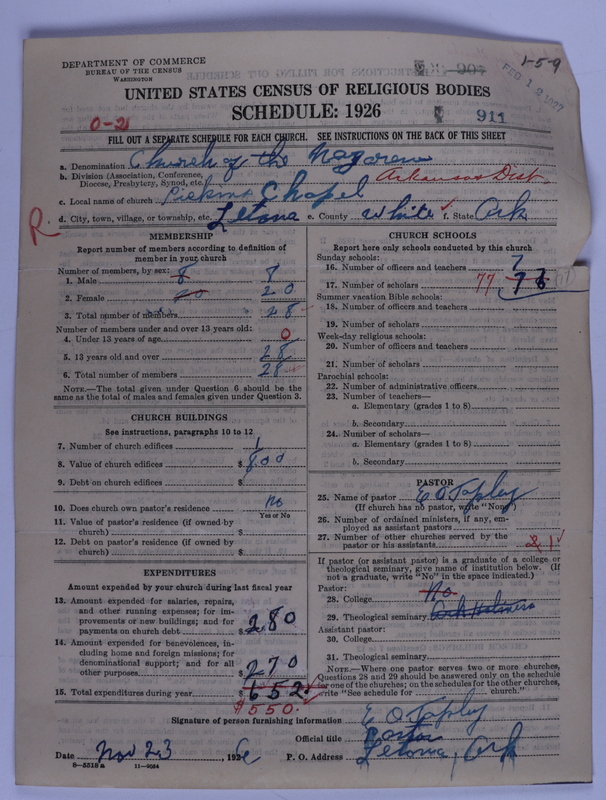 DEPARTMENT OF COMMERCE
BUREAU OF THE CENSUS
WASHINGTON
1-5-9
FEB 12 1927
UNITED STATES CENSUS OF RELIGIOUS BODIES
SCHEDULE: 1926
911
0-2
FILL OUT A SEPARATE SCHEDULE FOR EACH CHURCH. SEE INSTRUCTIONS ON THE BACK OF THIS SHEET
a. Denomination Church of the Nazarene
b. Division (Association, Conference, Diocese, Presbytery, Synod, etc. Arkansas Dist
c. Local name of church Pickins Chapel
R. d. City, town, village, or township, etc. Letona e. County White f. State Ark
MEMBERSHIP
Report number of members according to definition of member in your church
Number of members, by sex:
1. Male 8 8
2. Female 20 20
3. Total number of members 28
Number of members under and over 13 years old:
4. Under 13 years of age 0
5. 13 years old and over 28
6. Total number of members 28
NOTE.—The total given under Question 6 should be the same as the total of males and females given under Question 3.
CHURCH BUILDINGS
See instructions, paragraphs 10 to 12
7. Number of church edifices 1
8. Value of church edifices $800
9. Debt on church edifices $
10. Does church own pastor's residence no
Yes or No
11. Value of pastor's residence (if owned by church) $
12. Debt on pastor's residence (if owned by church) $
EXPENDITURES
Amount expended by your church during last fiscal year
13. Amount expended for salaries, repairs, and other running expenses; for improvements or new buildings; and for payments on church debt $280
14. Amount expended for benevolences, including home and foreign missions; for denominational support; and for all other purposes $270
15. Total expenditures during year $652.
$550.
CHURCH SCHOOLS
Report here only schools conducted by this church
Sunday schools:
16. Number of officers and teachers 7
17. Number of scholars 77
Summer vacation Bible schools:
18. Number of officers and teachers
19. Number of scholars
Week-day religious schools:
20. Number of officers and teachers
21. Number of scholars
Parochial schools:
22. Number of administrative officers
23. Number of teachers—
a. Elementary (grades 1 to 8)
b. Secondary
24. Number of scholars—
a. Elementary (grades 1 to 8)
b. Secondary
PASTOR
25. Name of pastor E O Tapley
(If church has no pastor, write "None")
26. Number of ordained ministers, if any, employed as assistant pastors
27. Number of other churches served by the pastor or his assistants 1
If pastor (or assistant pastor) is a graduate of a college or theological seminary, give name of institution below. (If not a graduate, write "No" in the space indicated.)
Pastor:
28. College No
29. Theological seminary Ark Holiness
Assistant pastor:
30. College
31. Theological seminary
NOTE.—Where one pastor serves two or more churches, Questions 28 and 29 should be answered only on the schedule for one of the churches; on the schedules for the other churches, write "See schedule for church."
Signature of person furnishing information E O Tapley
Official title Pastor
Date Nov 23, 1926 P. O. Address Letona, Ark
8-5518 a 11-9034